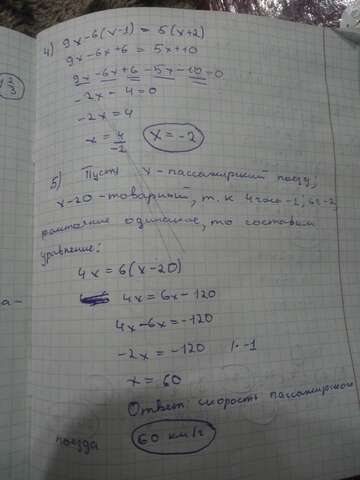 4) 9x-6(x-1) = 5(x+2)
9x-6x+6 = 5x+10
9x-6x+6-5x-10=0
-2x-4=0
-2x=4
x=4/-2 x=-2
2/3
5) Пусть x-пассажирский поезд,
x-20-товарный, т.к
одинаковое, то составим
уравнение:
4x=6(x-20)
4x=6x-120
4x-6x=-120
-2x=-120 |·-1
x=60
Ответ: скорость пассажирского
поезда 60 км/г
а-